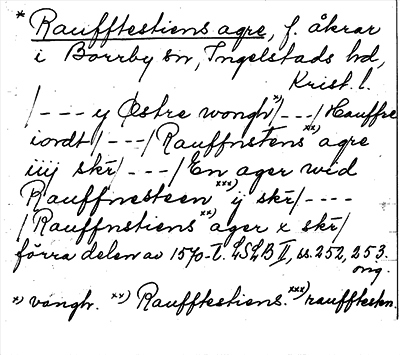 * Raufftestiens agre, f. åkrar
i Borrby sn, Ingelstads hd,
Krist. l.
/--- y Østre wongh*)/---/Hauffre
iordt/---/Rauffnstens xx) agre
iiij skr/---/En ager wid
Rauffnesteen xxx) ij skr/----
/Rauffnstiens xx) ager x skr/
förra delen av 1570-t. LSLB II, ss. 252, 253.
orig.
*) vongh. xx) Raufftestiens. xxx) raufftesten.